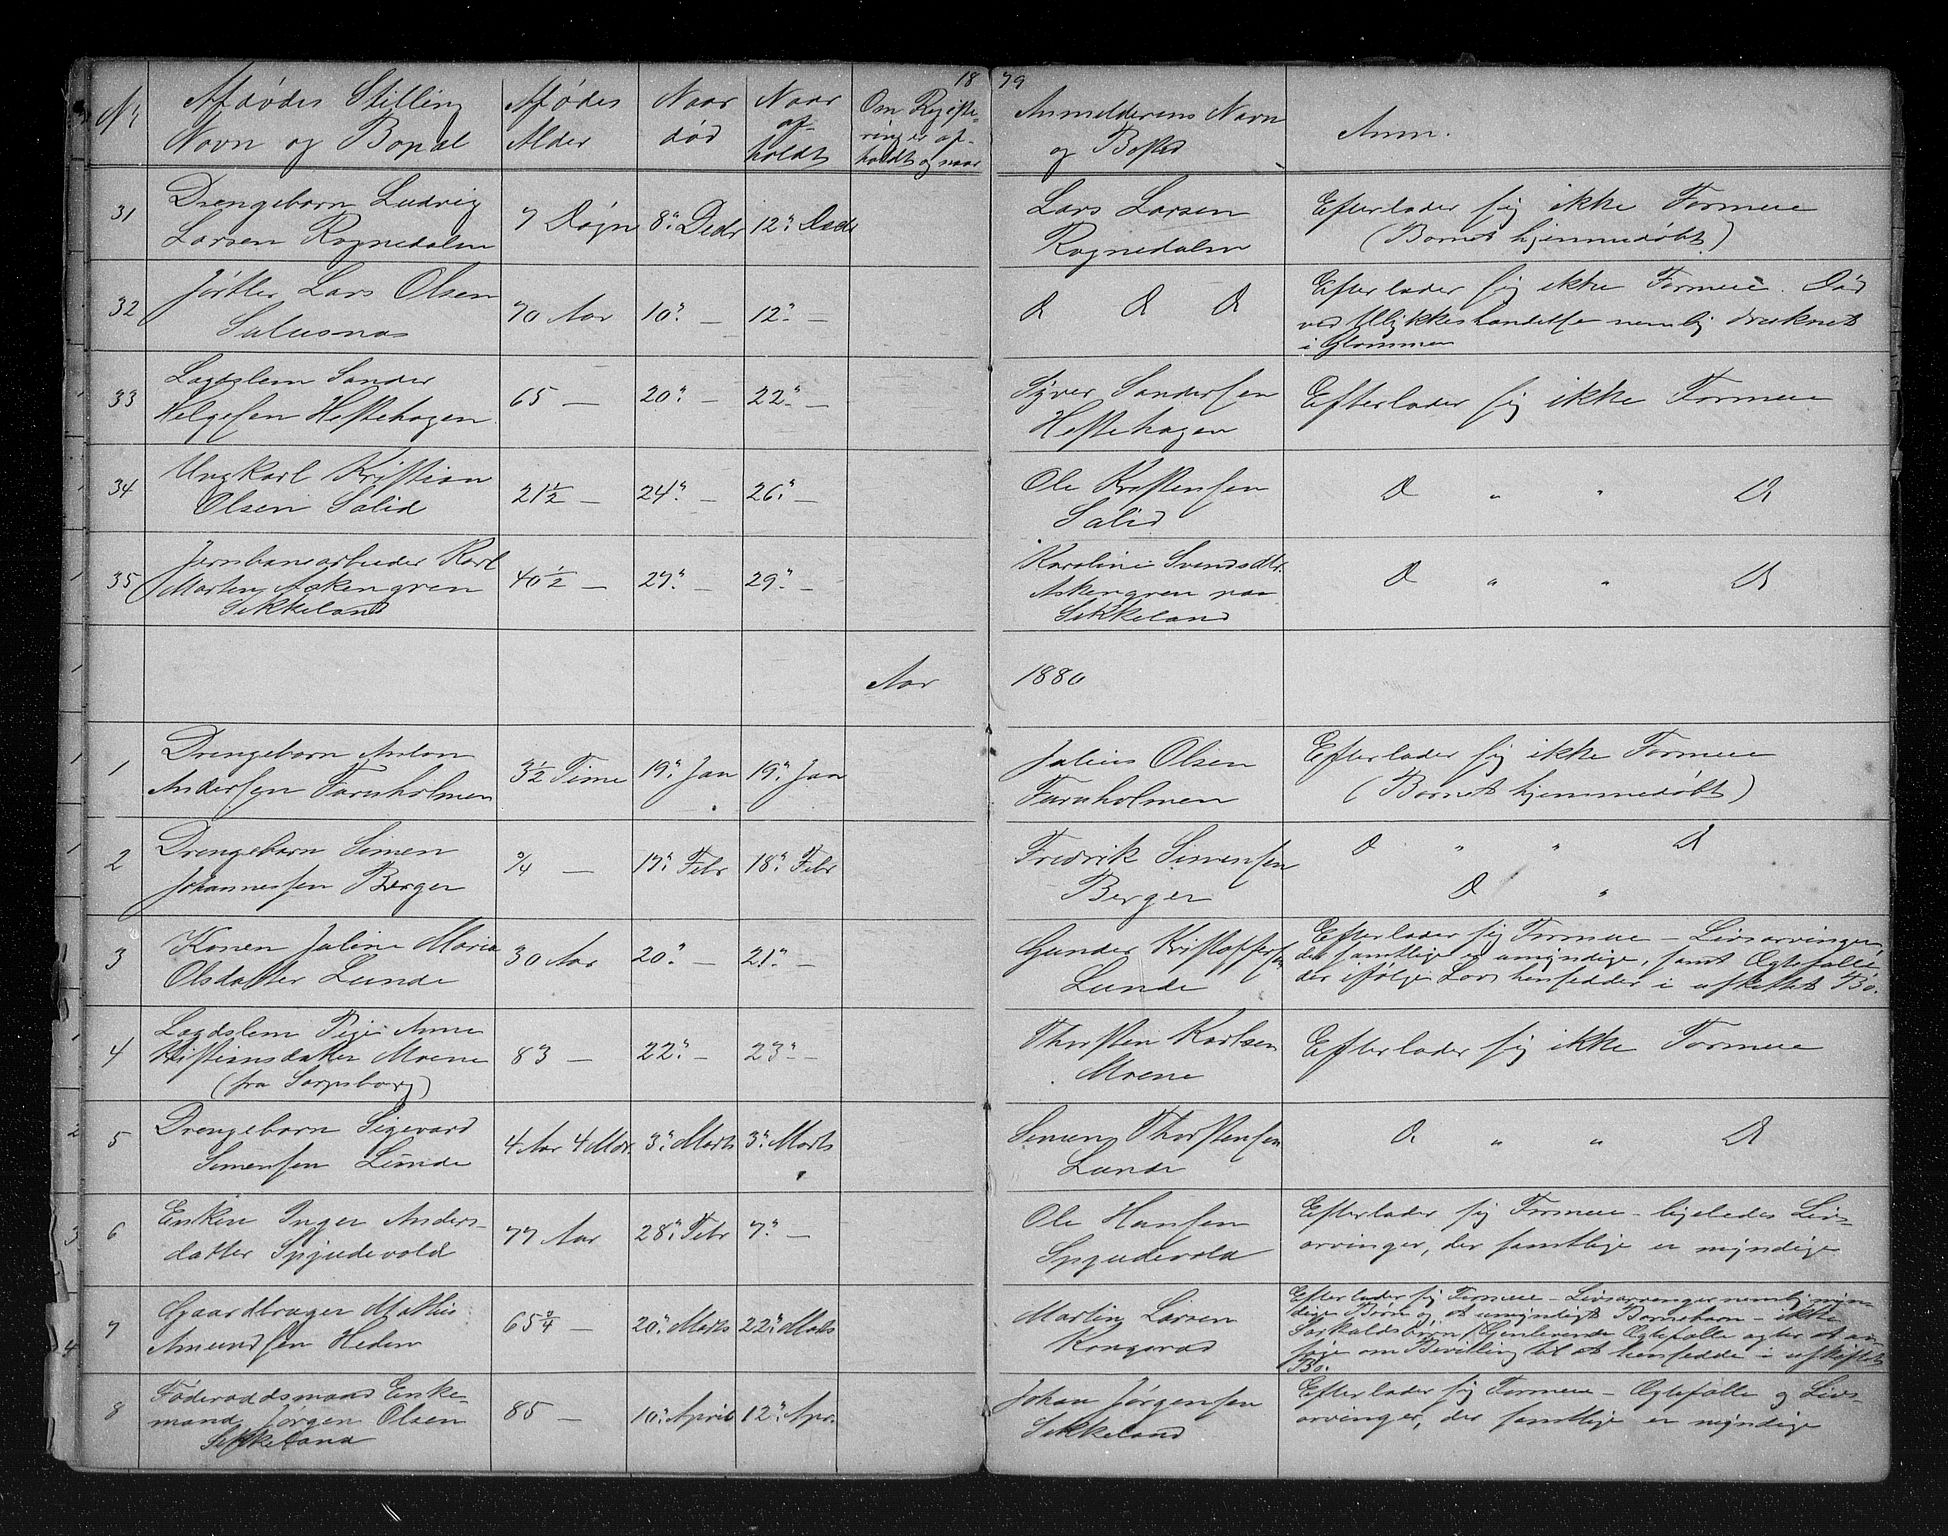 1879
No
Afdødes Stilling
Navn og Bopæl
Afdødes
Alder
Naar
død
Naar
af-
holdt
Om Registe-
ring er af-
holdt og naar
Anmelderens Navn
og Bosted
Anm.
31
Drengebarn Ludvig
Larsen Rognedalen
7 Døgn
8de Decbr
12te Decbr
Lars Larsen
Rognedalen
Efterlader sig ikke Formue
(Barnet hjemmedøbt)
32
Lars Olsen
70 Aar
10. —
12. —
D D D
Efterlader sig ikke Formue. Død
ved Ulykkeshændelse nemlig druknet
i Glommen
33
Lægdslem Sander
Helgesen Hestehagen
65 —
20. —
22. —
Syver Sandersen
Hestehagen
Efterlader sig ikke Formue
34
Ungkarl Kristian
Olsen Solid
21½ —
24. —
26. —
Ole Kristensen
Solid
D " " D
35
Jernbanearbeider Karl
Martin Askengren
Sikkeland
40½ —
27. —
29. —
Karoline Svendsdtr.
Askengren paa
Sikkeland
D " " D
Aar 1880
1
Drengebarn Anton
Andersen Furuholmen
3½ Time
19. Jan
19. Jan
Julius Olsen
Furuholmen
Efterlader sig ikke Formue
(Barnet hjemmedøbt)
2
Drengebarn Simen
Johannessen Berger
—
17. Febr
18. Febr
Fredrik Simensen
Berger
D " " D
D "
3
Konen Juline Maria
Olsdatter Lunde
30 Aar
20. —
21. —
Gunder Kristoffersen
Lunde
Efterlader sig Formue — Livsarvinger,
der samtlige er umyndige, samt Ægtefælle
der ifølge Lov hensidder i uskiftet Bo.
4
Lægdslem Pige Anne
Kristiansdatter Moene
(fra Sarpsborg)
83 —
22. —
23. —
Thorsten Karlsen
Moene
Efterlader sig ikke Formue
5
Drengebarn Sigevard
Simensen Lunde
4 Aar 4 Mdr.
3. Marts
3. Marts
Simen Thorstensen
Lunde
D " " D
6
Enken Inger Anders-
datter Spydevold
77 Aar
28. Febr
7. —
Ole Hansen
Spydevold
Efterlader sig Formue — ligeledes Livs-
arvinger, der samtlige er myndige
7
Gaardbruger Mathis
Amundsen Heden
65¾ —
20. Marts
22. Marts
Martin Larsen
Kongsrud
Efterlader sig Formue — Livsarvinger nemlig myn-
dige Børn og et umyndigt Barnebarn — ikke
Særkuldsbørn. Gjenlevende Ægtefælle agter at an-
søge om Bevilling til at hensidde i uskiftet
Bo.
8
Føderaadsmand Enke-
mand Jørgen Olsen
Sikkeland
85 —
10. April
12. Apr.
Johan Jørgensen
Sikkeland
Efterlader sig Formue — Ægtefælle og Livs-
arvinger, der samtlige er myndige